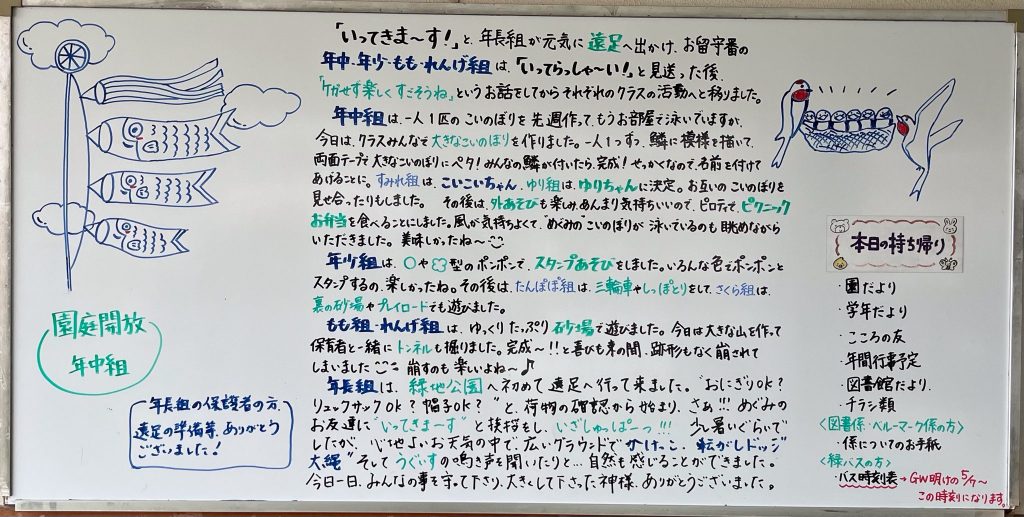 「いってきま〜す!」と、年長組が元気に遠足へ出かけ、お留守番の
年中・年少・もも・れんげ組は、「いってらっしゃ〜い!」と見送った後、
「ケガせず楽しくすごそうね」というお話をしてからそれぞれのクラスの活動へと移りました。
年中組は、一人1匹のこいのぼりを先週作って、もうお部屋で泳いでいますが、
今日は、クラスみんなで大きなこいのぼりを作りました。一人1つずつ、鱗に模様を描いて、
両面テープで大きなこいのぼりにペタ!みんなの鱗が付いたら完成!せっかくなので、名前を付けて
あげることに。すみれ組は、こいこいちゃん、ゆり組は、ゆりちゃんに決定。お互いのこいのぼりを
見せ合ったりもしました。その後は、外あそびも楽しみ、あんまり気持ちいいので、ピロティで、ピクニック
お弁当を食べることにしました。風が気持ちよくて、"めぐみの"こいのぼりが泳いているのも眺めながら
いただきました。美味しかったね〜
年少組は、○や型のポンポンで、スタンプあそびをしました。いろんな色でポンポンと
スタンプするの、楽しかったね。その後は、たんぽぽ組は、三輪車やしっぽとりをして、さくら組は、
裏の砂場やプレイロードでも遊びました。
もも組・れんげ組は、ゆっくりたっぷり砂場で遊びました。今日は大きな山を作って
保育者と一緒にトンネルも掘りました。完成〜!!と喜びも束の間、跡形もなく崩されて
しまいました 崩すのも楽しいよね〜♪
年長組は、緑地公園へ初めて遠足へ行って来ました。"おにぎりOK?
リュックサックOK?帽子OK?"と、荷物の確認から始まり、さぁ!!!めぐみの
お友達に"いってきま〜す"と挨拶をし、いざしゅっぱーつ!!!少し暑いぐらいで
したが、心地よいお天気の中で、広いグラウンドで"かけっこ、転がしドッジ
大縄"そしてうぐいすの鳴き声を聞いたりと…自然も感じることができました。
今日一日、みんなの事を守って下さり、大きくして下さった神様、ありがとうございました。
園庭開放
年中組
年長組の保護者の方、
遠足の準備等、ありがとう
ございました!
本日の持ち帰り
・園だより
・学年だより
・こころの友
・年間行事予定
・図書館だより
・チラシ類
〈図書係・ベルマーク係の方〉
・係についてのお手紙
〈緑バスの方〉
・バス時刻表→GW明けの5/7〜
この時刻になります。